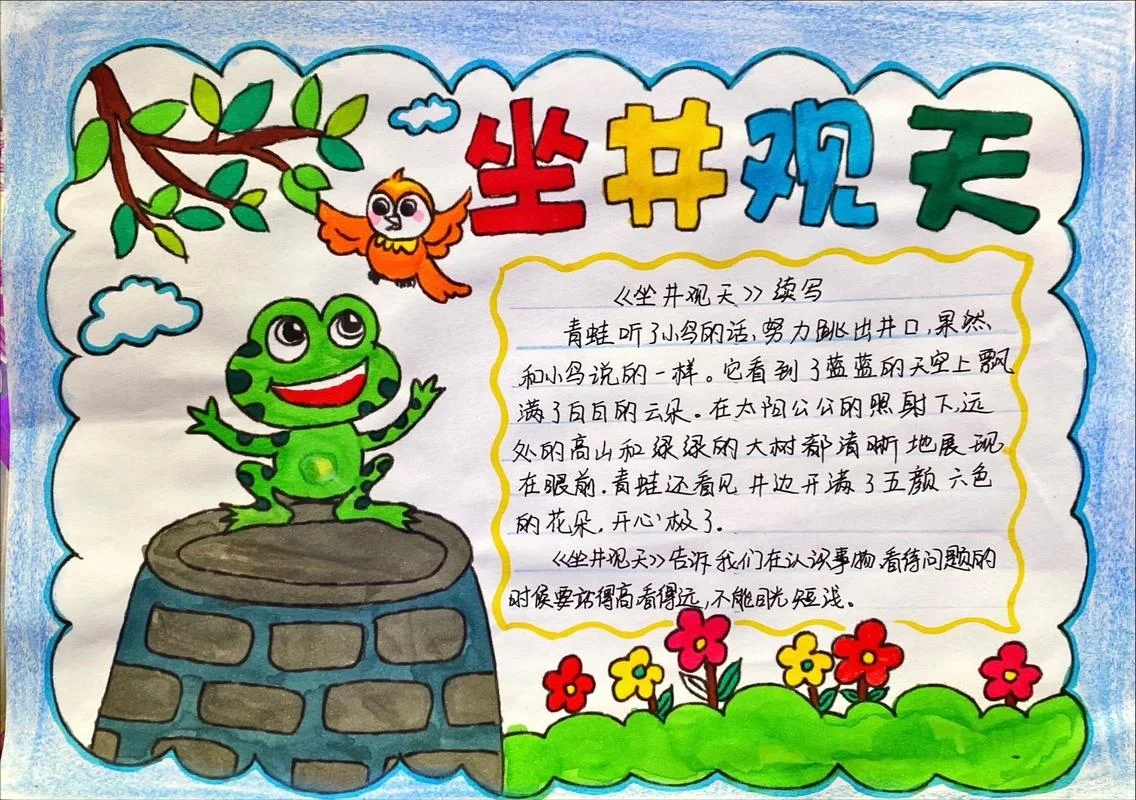 坐井观天
《坐井观天》续写
青蛙听了小鸟的话，努力跳出井口，果然
和小鸟说的一样。它看到了蓝蓝的天空上飘
满了白白的云朵。在太阳公公的照射下，远
处的高山和绿绿的大树都清晰地展现
在眼前。青蛙还看见井边开满了五颜六色
的花朵，开心极了。
《坐井观天》告诉我们在认识事物，看待问题的
时候要站得高看得远，不能目光短浅。